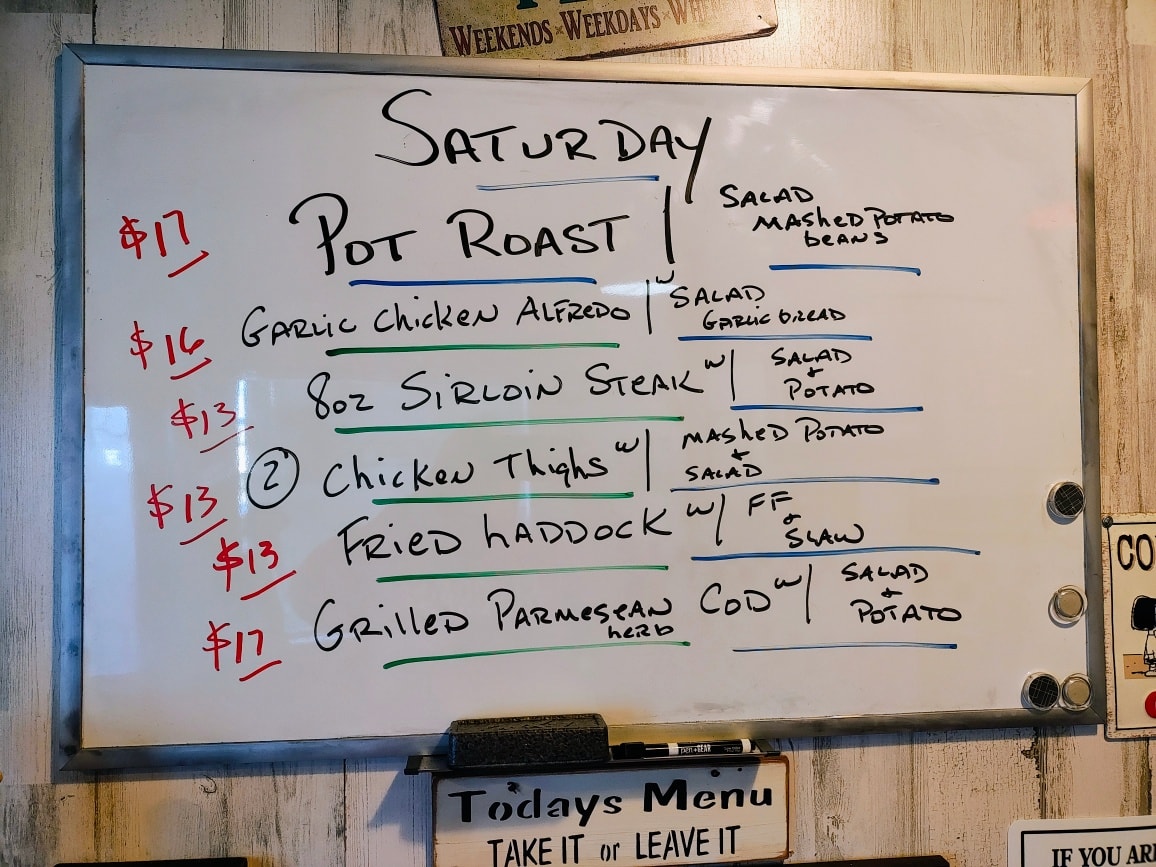 WEEKENDS × WEEKDAYS
SATURDAY
$17 POT ROAST | SALAD
MASHED POTATO
beans
$16 GARLIC Chicken ALFREDO w/ SALAD
GARLIC bread
$13 8oz SIRLOIN STEAK w/ SALAD
+
POTATO
$13 2 Chicken Thighs w/ MASHED POTATO
+
SALAD
$13 FRIED hADDOCK w/ FF
+
SLAW
$17 GRILLED PARMESEAN COD w/ SALAD
herb
+
POTATO
EXPO
Todays Menu
TAKE IT or LEAVE IT
CO
IF YOU ARE